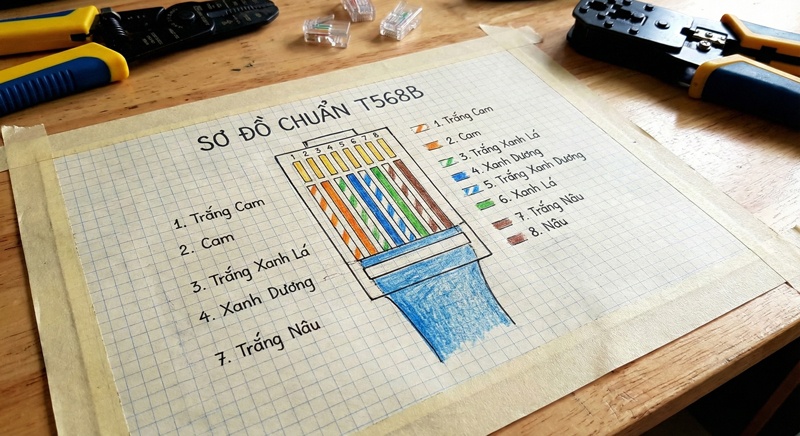 SƠ ĐỒ CHUẨN T568B
1 2 3 4 5 6 7 8
1. Trắng Cam
2. Cam
3. Trắng Xanh Lá
4. Xanh Dương
7. Trắng Nâu
1. Trắng Cam
2. Cam
3. Trắng Xanh Lá
4. Xanh Dương
5. Trắng Xanh Dương
6. Xanh Lá
7. Trắng Nâu
8. Nâu